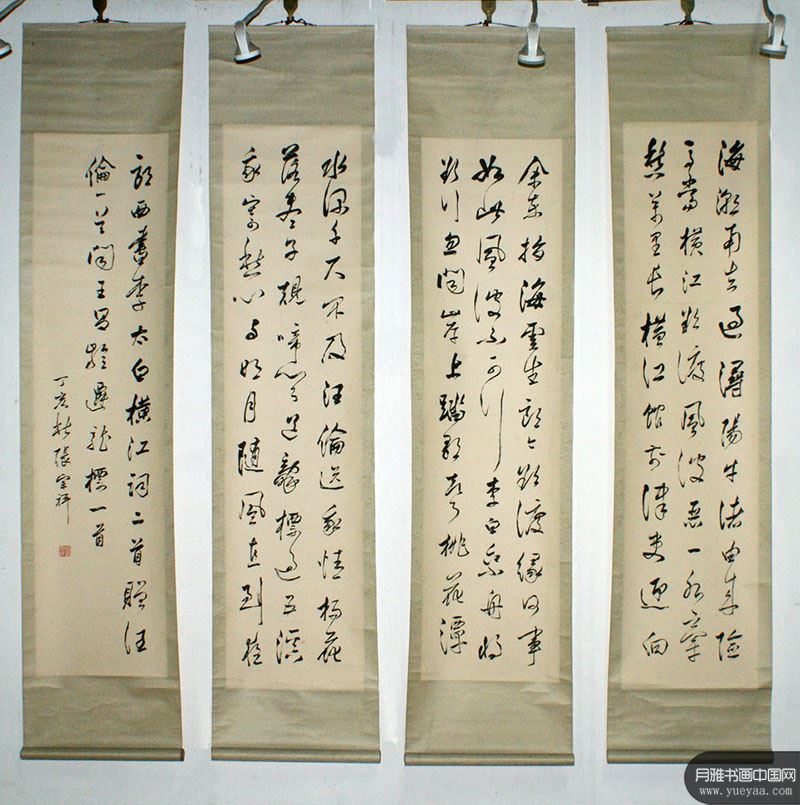 海潮南去過潯陽牛渚由來險
馬當橫江欲渡風波惡一水牽
愁萬里長橫江館前津吏迎向
余東指海雲生郎今欲渡緣何事
如此風波不可行李白乘舟將
欲行忽聞岸上踏歌聲桃花潭
水深千尺不及汪倫送我情楊花
落盡子規啼聞道龍標過五溪
我寄愁心與明月隨風直到夜
郎西書李太白橫江詞二首贈汪
倫一首聞王昌齡遷龍標一首
丁亥秋張宗祥
月雅书画中国网
www.yueyaa.com